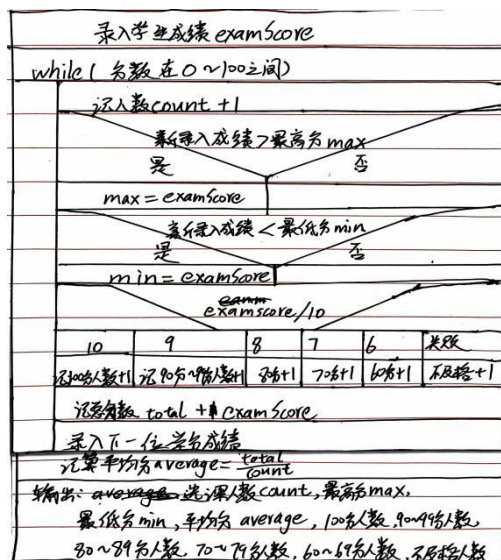 录入学生成绩examScore
while(分数在0~100之间)
记人数count+1
新录入成绩>最高分max
是 否
max=examScore
新录入成绩<最低分min
是 否
min=examScore
examscore/10
10 9 8 7 6
记100分人数+1 记90分~99分人数+1 80分+1 70分+1 60分+1 不及格+1
记总分数 total + examScore
录入下一位学生成绩
计算平均分average=total/count
输出: average 选课人数count,最高分max,
最低分min,平均分average,100分人数,90~99分人数,
80~89分人数,70~79分人数,60~69分人数,不及格人数